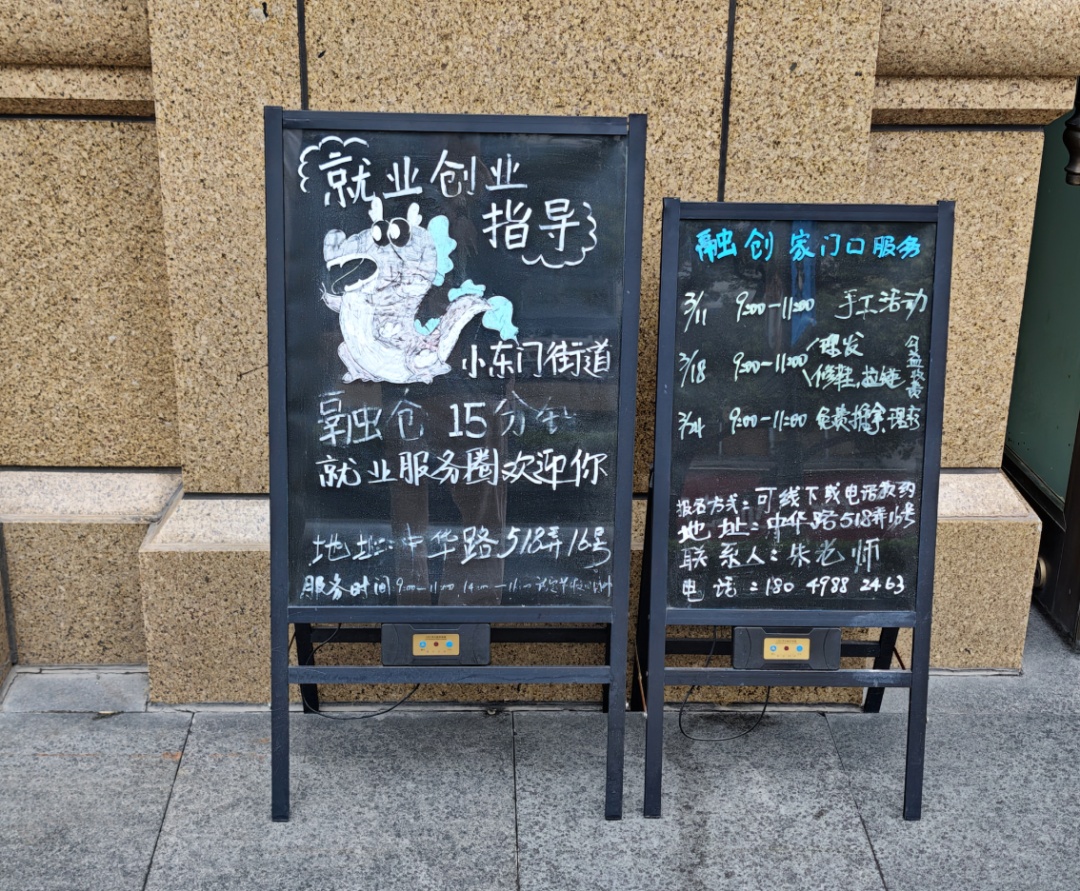 就业创业
指导
小东门街道
融虫仓 15分钟
就业服务圈欢迎你
地址:中华路518弄16号
服务时间 9:00-11:00
融创家门口服务
3/11 9:00-11:00 手工活动
3/18 9:00-11:00 理发
修鞋,拉链
公益收费
3/24 9:00-11:00 免费推拿、理疗
报名方式:可线下或电话预约
地址:中华路518弄16号
联系人:朱老师
电话:180 4988 2463